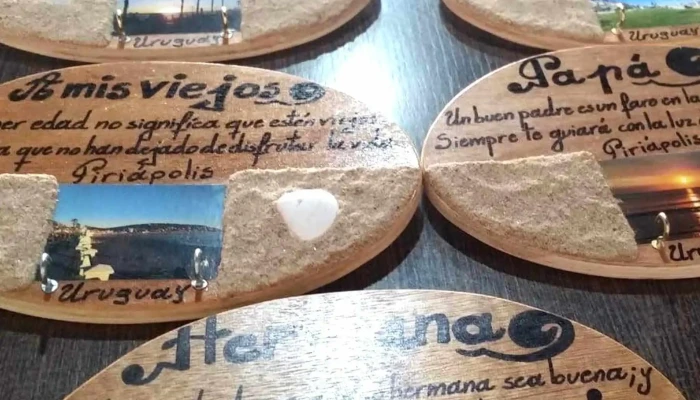 Uruguay
Uruguay
A mis viejos
edad no significa que estén viejos
a que no han dejado de disfrutar la vida
Piriápolis
Uruguay
Papá
Un buen padre es un faro en la
Siempre te guiará con la luz
Piriápolis
Hermana
hermana sea buena; y